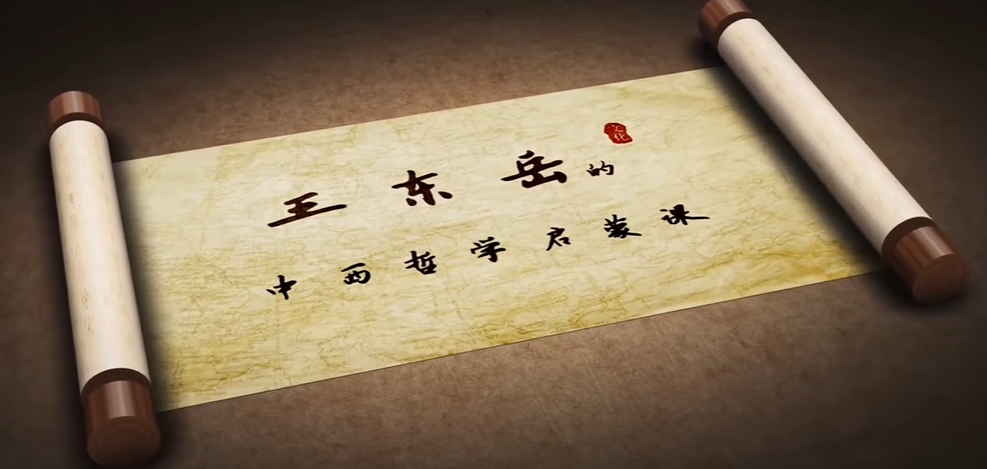 文化
王东岳的
中西哲学启蒙课